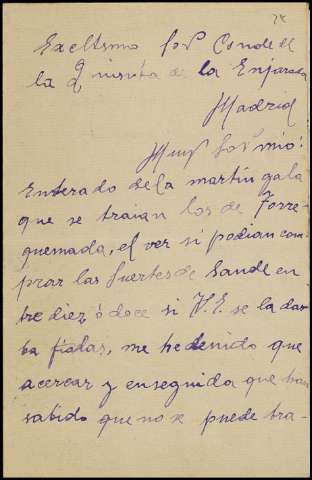 24
Exceltsmo Sor Conde de
la Quinta de la Enjarada
Madrid
Muy Sor mio:
Enterado de la martin gala
que se traian los de Torre-
quemada, el ver si podian com
prar las suertes de Sande en
tre diez ó doce si V.E. se la da
ba fiadas, me he denido que
acercar y enseguida que han
sabido que no se puede tra-